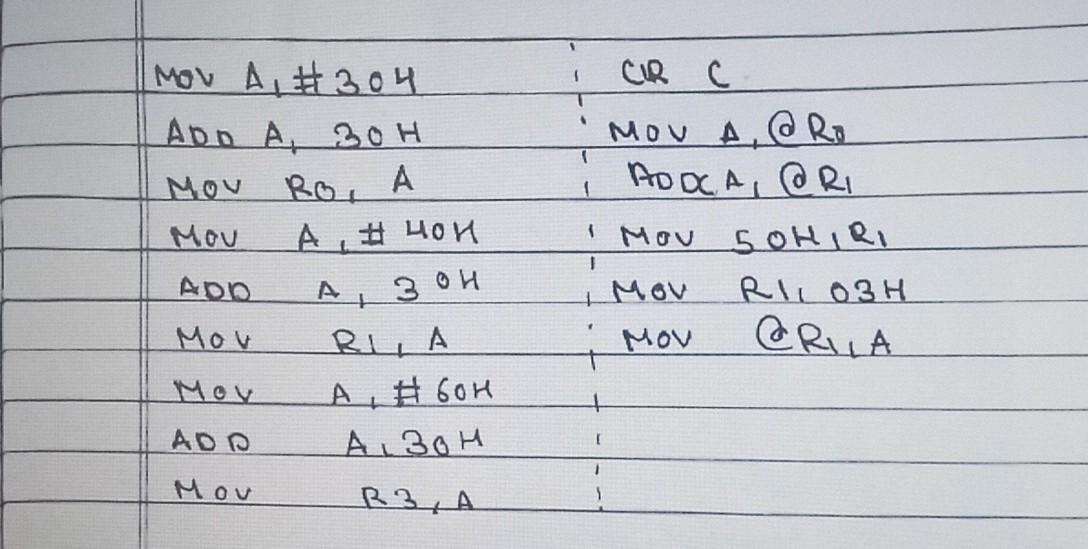 MOV A, #304
ADD A, 30H
MOV R0, A
MOV A, #40H
ADD A, 30H
MOV R1, A
MOV A, #60H
ADD A, 30H
MOV R3, A
CLR C
MOV A, @R0
ADDC A, @R1
MOV 50H, R1
MOV R1, 03H
MOV @R1, A